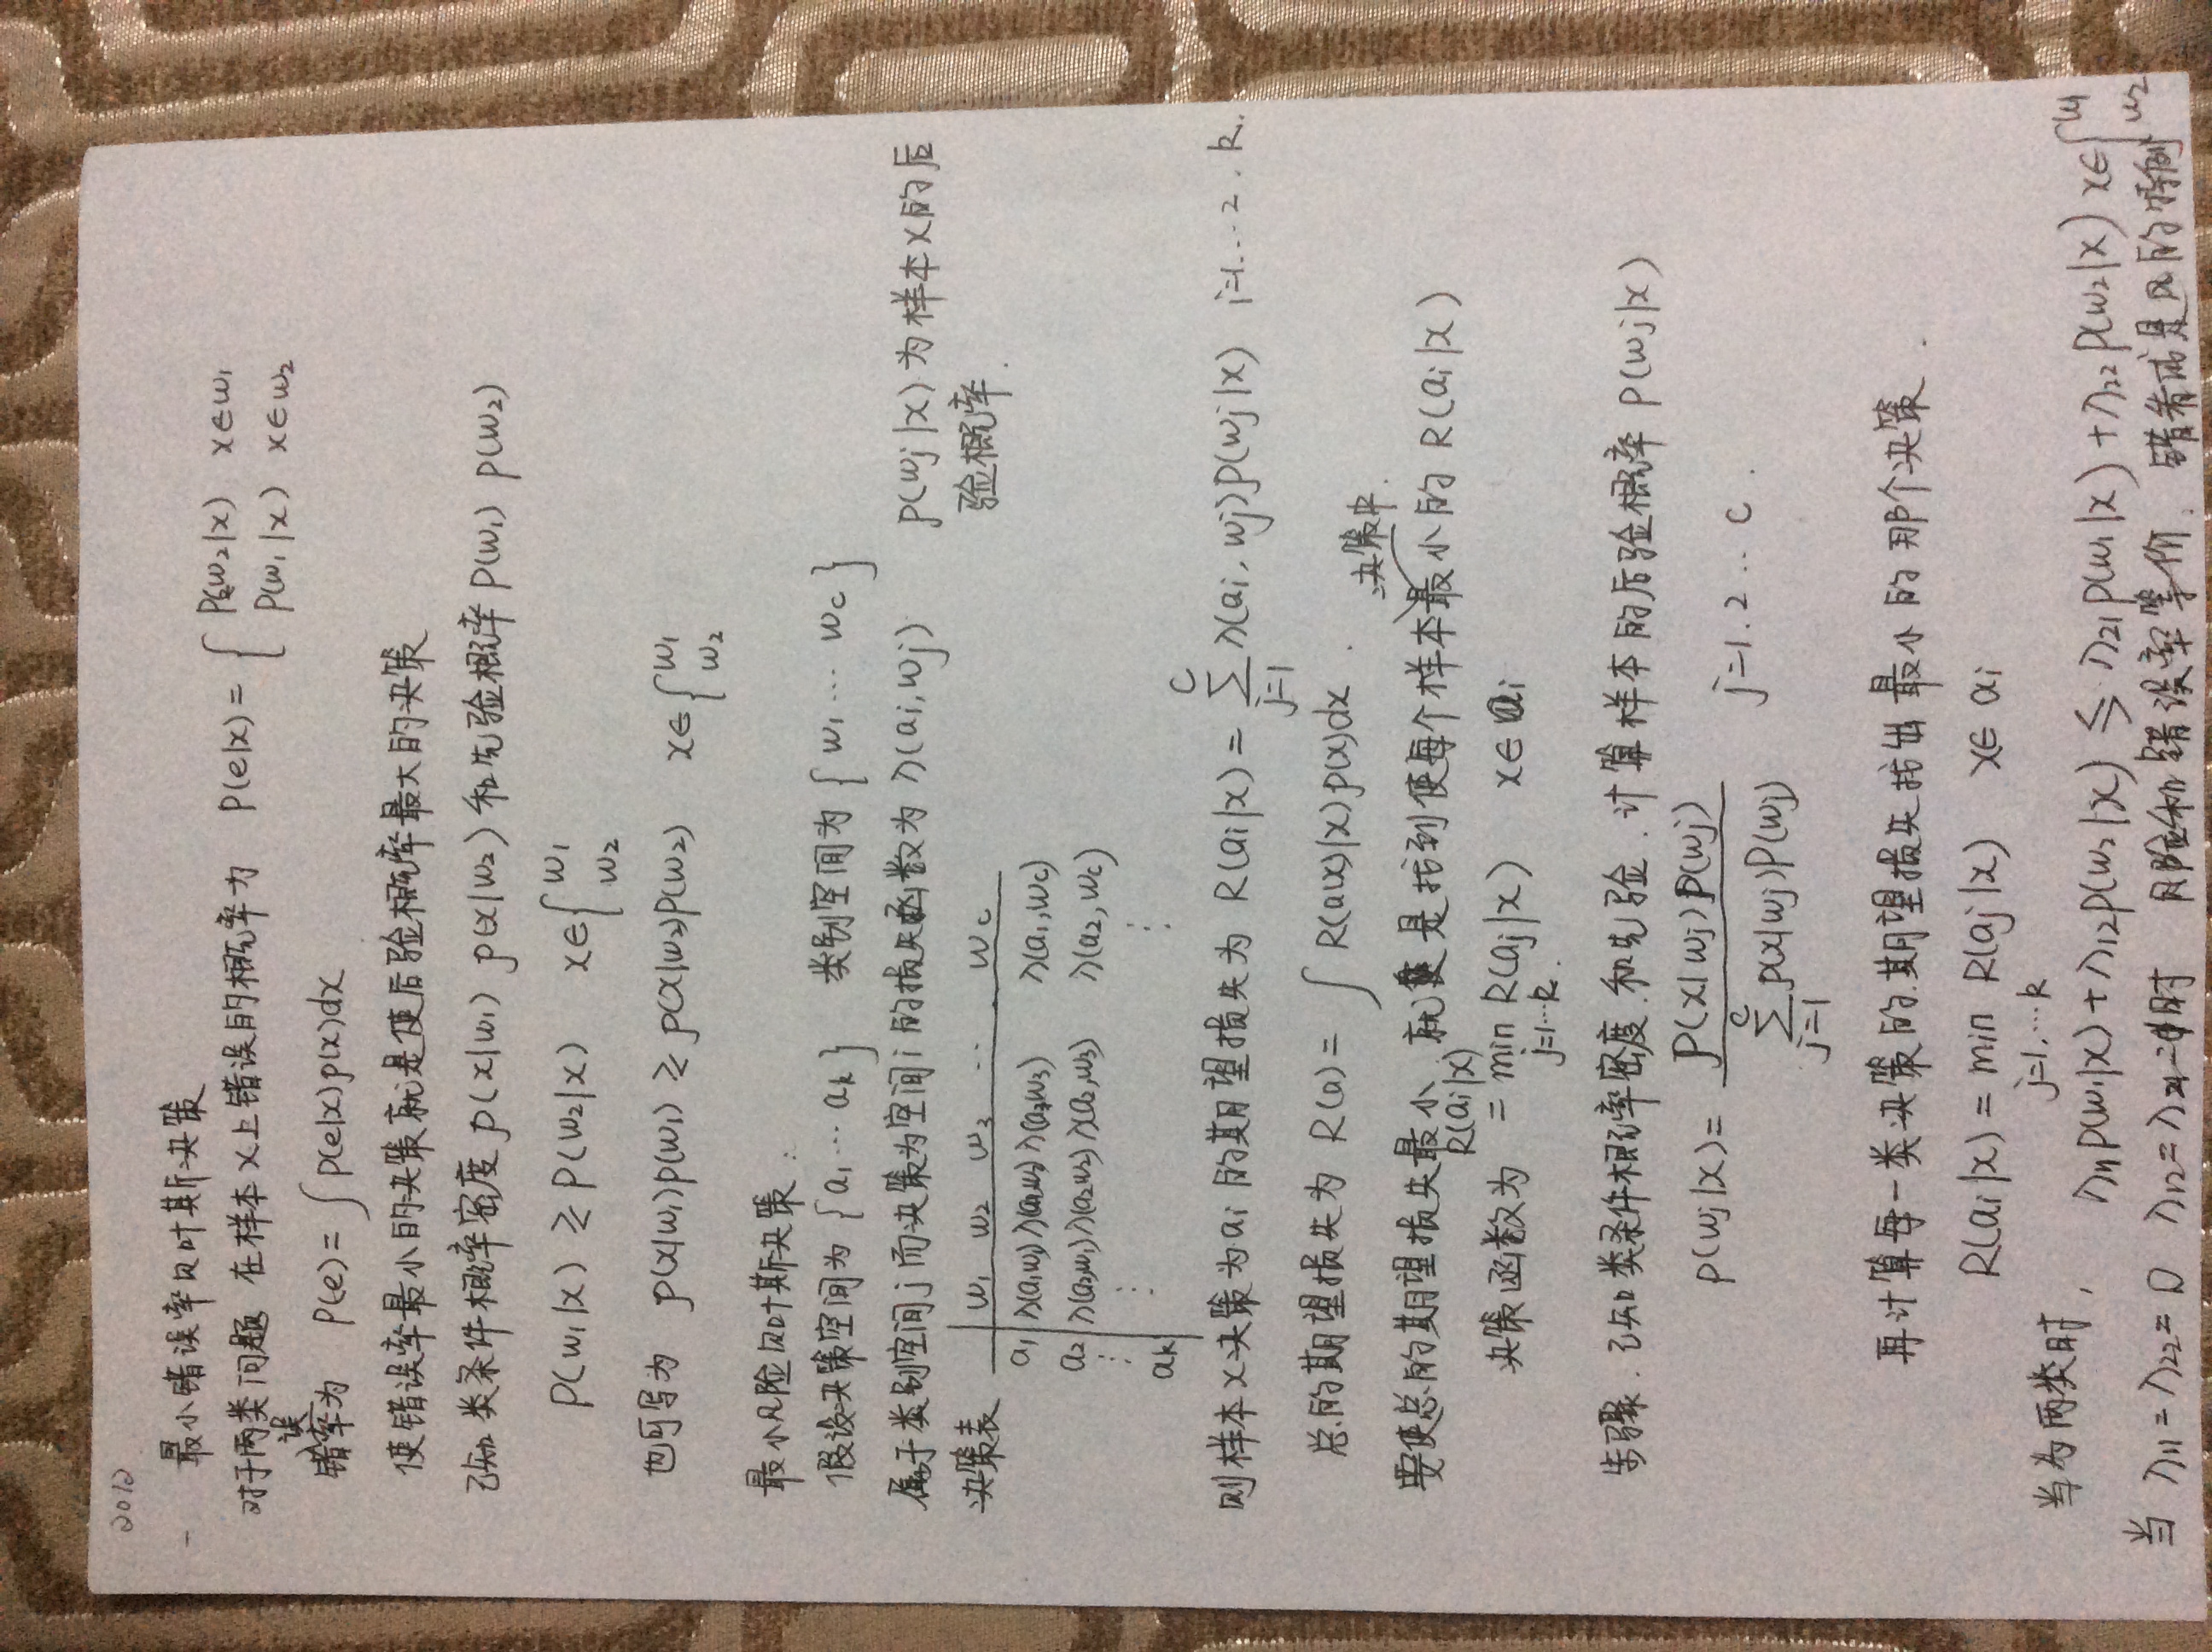 2012
一 最小错误率贝叶斯决策
对于两类问题 在样本x上错误的概率为 P(e|x) = { P(w₂|x) x∈w₁
P(w₁|x) x∈w₂
错误率为 P(e) = ∫P(e|x)p(x)dx
使错误率最小的决策就是使后验概率最大的决策
已知类条件概率密度 p(x|w₁) p(x|w₂) 和先验概率 P(w₁) P(w₂)
P(w₁|x) ≥ P(w₂|x) x∈{ w₁
w₂
也可写为 p(x|w₁)p(w₁) ≥ p(x|w₂)P(w₂) x∈{ w₁
w₂
最小风险贝叶斯决策:
假设决策空间为 { a₁ … aₖ } 类别空间为 { w₁ … w_c }
属于类别空间j而决策为空间i的损失函数为 λ(aᵢ,wⱼ) P(wⱼ|x)为样本x的后
验概率.
决策表
w₁ w₂ w₃ … w_c
a₁ λ(a₁w₁) λ(a₁w₂) λ(a₁w₃) λ(a₁,w_c)
a₂ λ(a₂,w₁) λ(a₂w₂) λ(a₂,w₃) λ(a₂,w_c)
⋮ ⋮ ⋮
aₖ
则样本x决策为aᵢ的期望损失为 R(aᵢ|x) = Σ_{j=1}^{c} λ(aᵢ,wⱼ)P(wⱼ|x) i=1…2.k.
总的期望损失为 R(a) = ∫R(a(x)|x)p(x)dx.
要使总的期望损失最小、就是找到使每个样本决策中最小的 R(aᵢ|x)
决策函数为 R(aᵢ|x) = min_{j=1…k.} R(aⱼ|x) x∈aᵢ
步骤. 已知类条件概率密度 和先验. 计算样本的后验概率 P(wⱼ|x)
P(wⱼ|x) = P(x|wⱼ)P(wⱼ) / Σ_{j=1}^{c} p(x|wⱼ)P(wⱼ) j=1.2…C.
再计算每一类决策的期望损失找出最小的那个决策.
R(aᵢ|x) = min_{j=1,…k} R(aⱼ|x) x∈aᵢ
当为两类时, λ₁₁P(w₁|x) + λ₁₂P(w₂|x) ≶ λ₂₁P(w₁|x) + λ₂₂P(w₂|x) x∈{ w₁
w₂
当 λ₁₁ = λ₂₂ = 0 λ₁₂ = λ₂₁ = 1时 风险和错误率等价. 错 是风 的特例